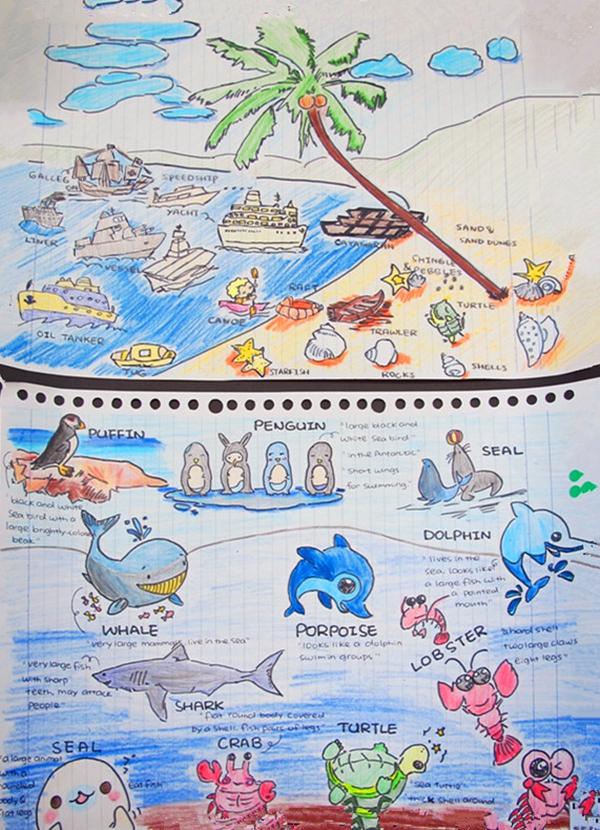 GALLEG
ON
SPEEDSHIP
YACHT
LINER
VESSEL
CATAMARAN
SAND &
SAND DUNES
SHINGLE
& PEBBLES
RAFT
CANOE
TURTLE
OIL TANKER
TRAWLER
TUG
STARFISH
ROCKS
SHELLS
PUFFIN
"black and white
sea bird with a
large brightly-colored
beak"
PENGUIN
"large black and
white sea bird"
"in the Antarctic"
"short wings
for swimming."
SEAL
DOLPHIN
"lives in the
sea. looks like
a large fish with
a pointed
mouth"
WHALE
"very large mammals, live in the sea"
PORPOISE
"looks like a dolphin
swim in groups"
LOBSTER
"hard shell
two large claws
eight legs"
"very large fish
with sharp
teeth, may attack
people"
SHARK
"flat round body covered
by a shell. fish pairs of legs"
CRAB
TURTLE
"sea turtle"
thick shell around
SEAL
"a large animal
with a
rounded
body &
flat legs
eat fish"